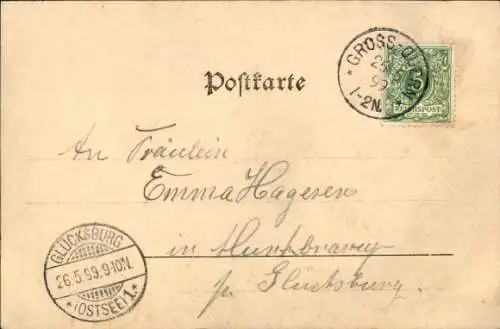 Postkarte
GROSS-QU
99
1-2N.
5
REICHSPOST
An Fräulein
Emma Hagesen
in
pr Glücksburg.
GLÜCKSBURG
26.5.99.9-10N.
* (OSTSEE) 1. *